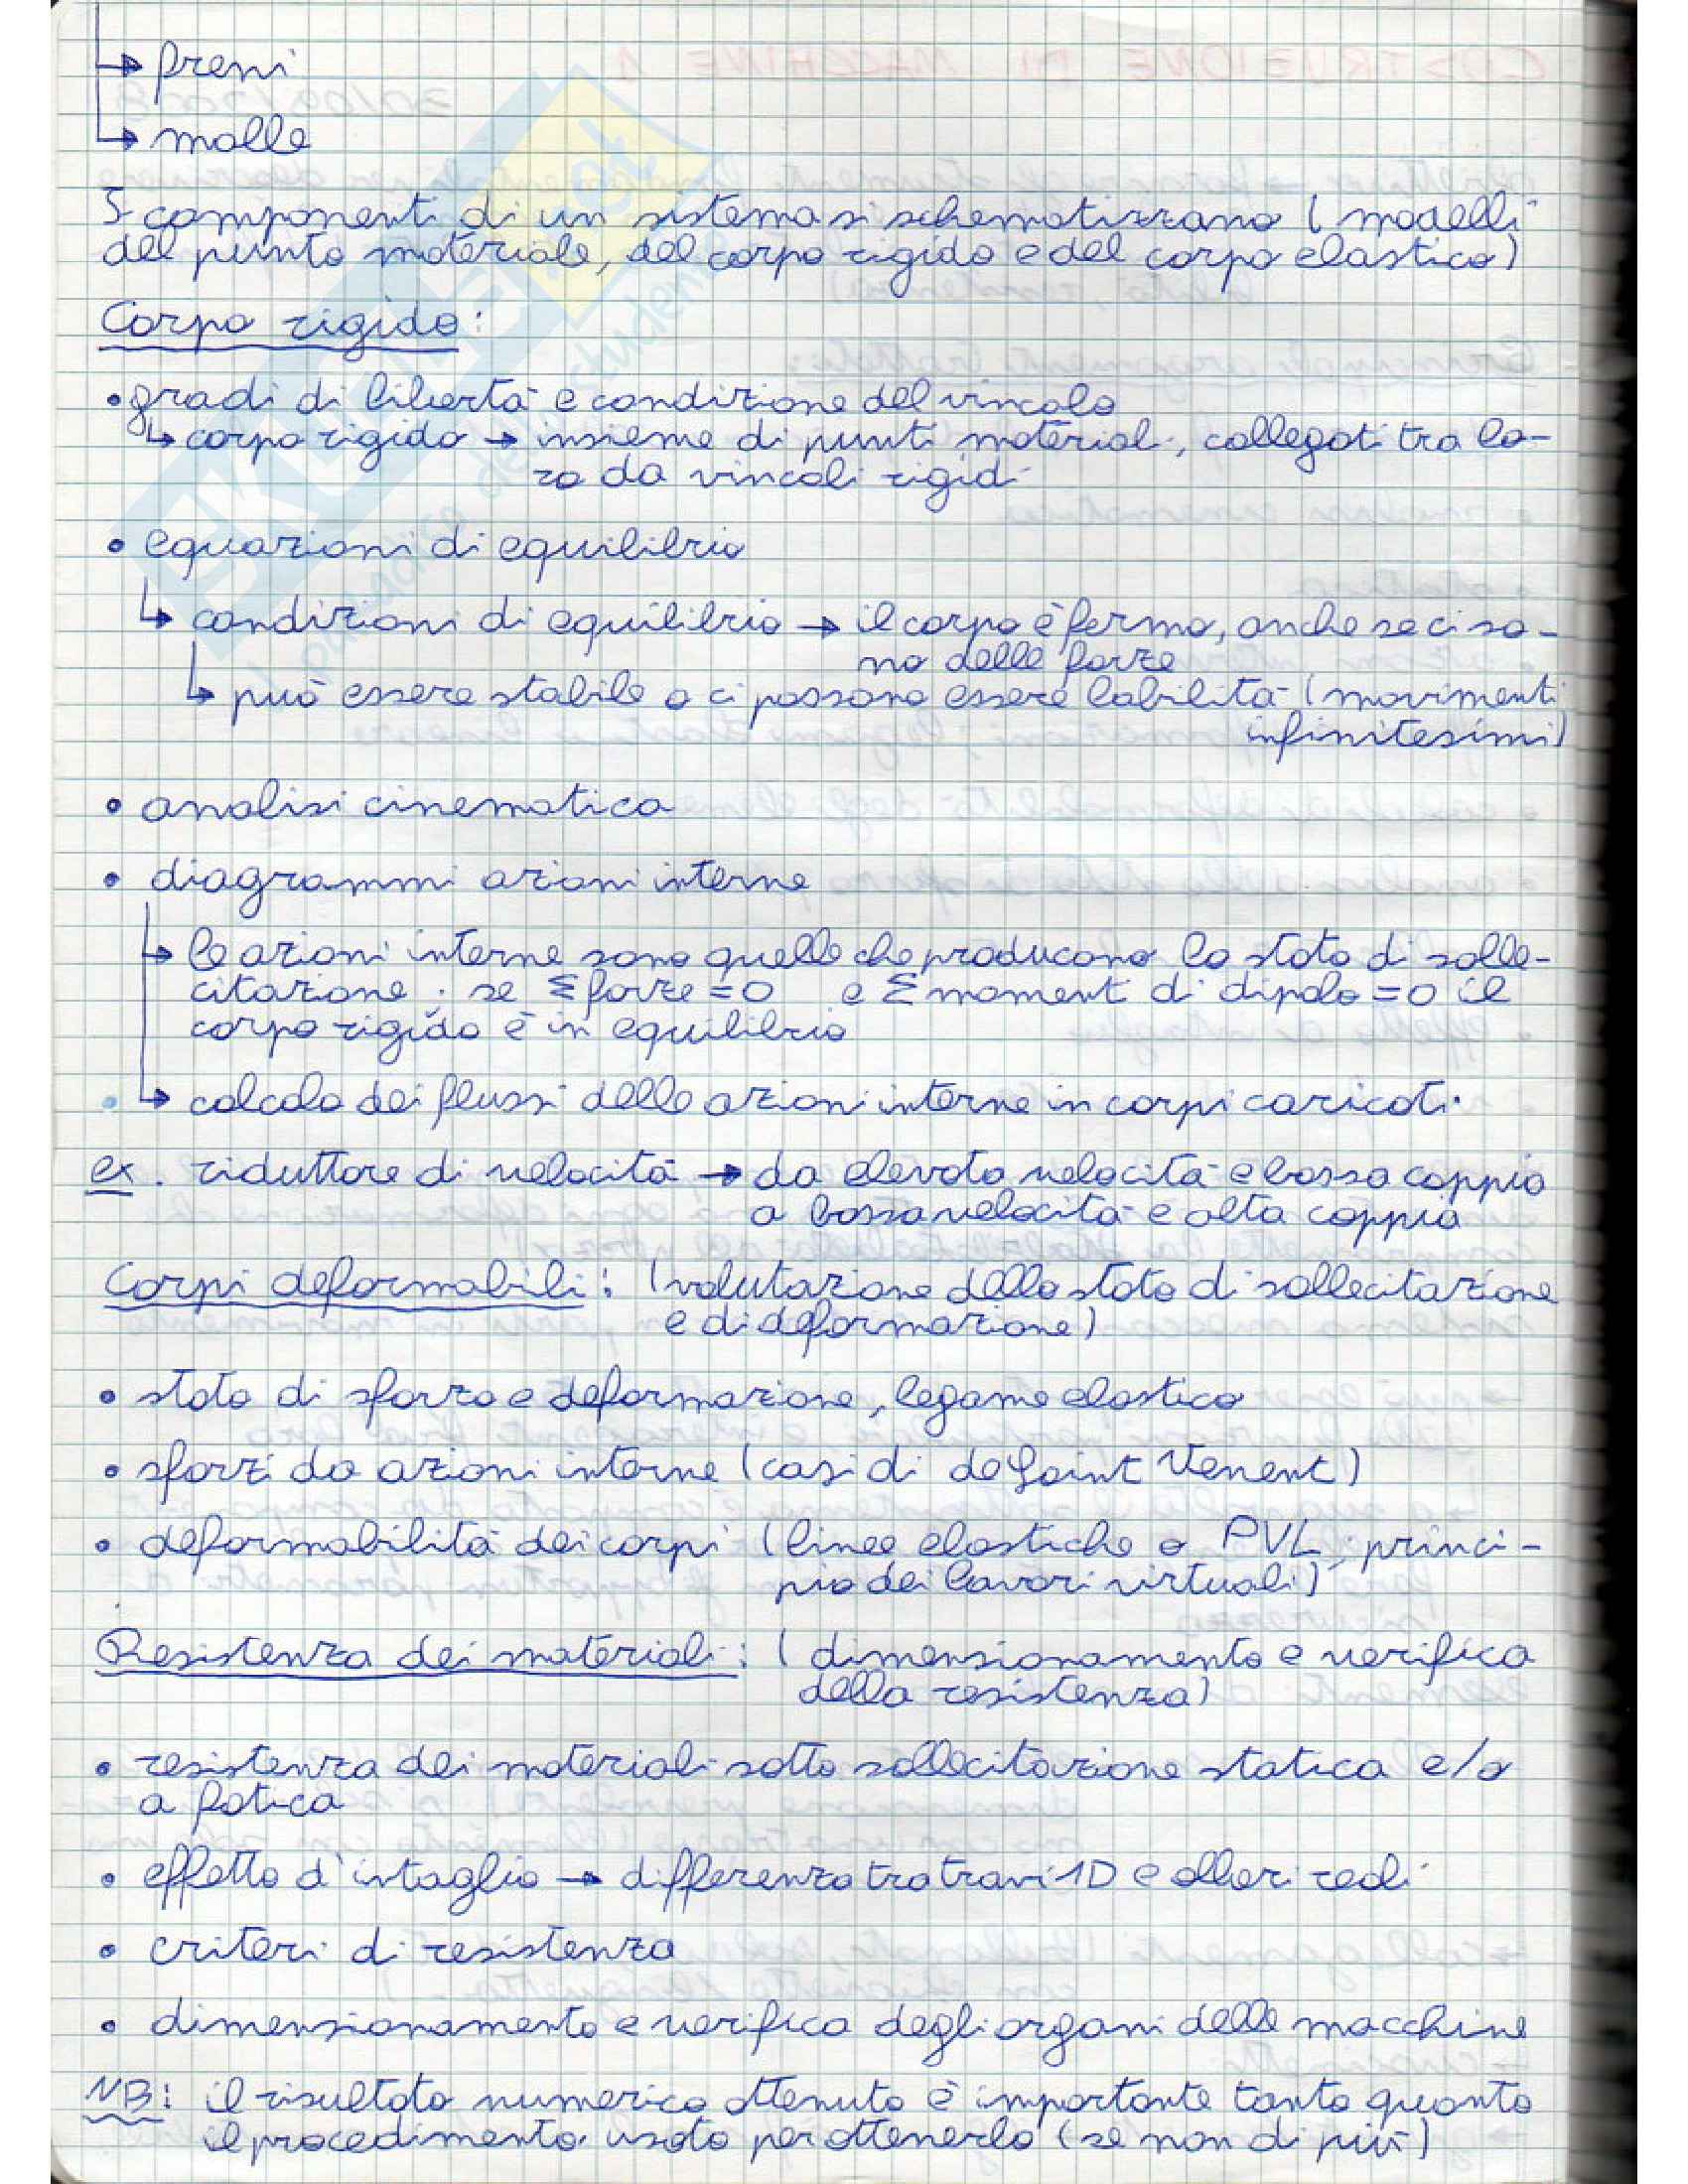 ↳ freni
↳ molle
I componenti di un sistema si schematizzano (modelli
del punto materiale, del corpo rigido e del corpo elastico)
Corpo rigido:
• gradi di libertà e condizione del vincolo
↳ corpo rigido → insieme di punti materiali, collegati tra lo-
ro da vincoli rigidi
• equazioni di equilibrio
↳ condizioni di equilibrio → il corpo è fermo, anche se ci so-
no delle forze
↳ può essere stabile o ci possono essere labilità (movimenti
infinitesimi)
• analisi cinematica
• diagrammi azioni interne
↳ le azioni interne sono quelle che producono lo stato di solle-
citazione. se Σ forze = 0 e Σ momenti di dipolo = 0 il
corpo rigido è in equilibrio
↳ calcolo dei flussi delle azioni interne in corpi caricati.
ex. riduttore di velocità → da elevata velocità e bassa coppia
a bassa velocità e alta coppia
Corpi deformabili: (valutazione dello stato di sollecitazione
e di deformazione)
• stato di sforzo e deformazione, legame elastico
• sforzi da azioni interne (casi di de Saint Venent)
• deformabilità dei corpi (linee elastiche o PVL, princi-
pio dei lavori virtuali)
Resistenza dei materiali: (dimensionamento e verifica
della resistenza)
• resistenza dei materiali sotto sollecitazione statica e/o
a fatica
• effetto d'intaglio → differenza tra travi 1D e alberi reali
• criteri di resistenza
• dimensionamento e verifica degli organi delle macchine
NB: il risultato numerico ottenuto è importante tanto quanto
il procedimento usato per ottenerlo (se non di più)